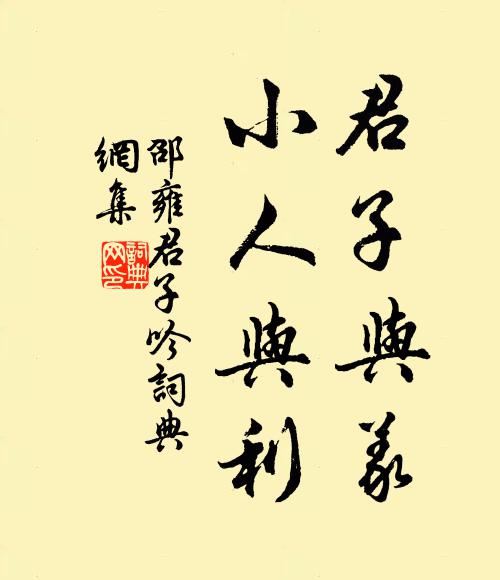 君子與義
小人與利
邵雍君子吟詞典
網集
詞典網印